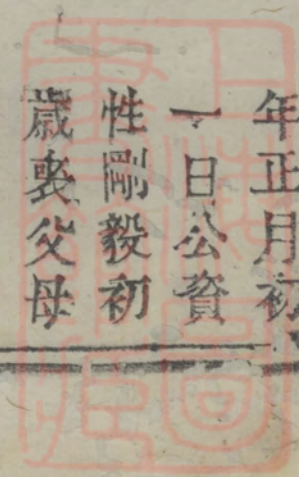 年正月初
一日公資
性剛毅初
歲喪父母